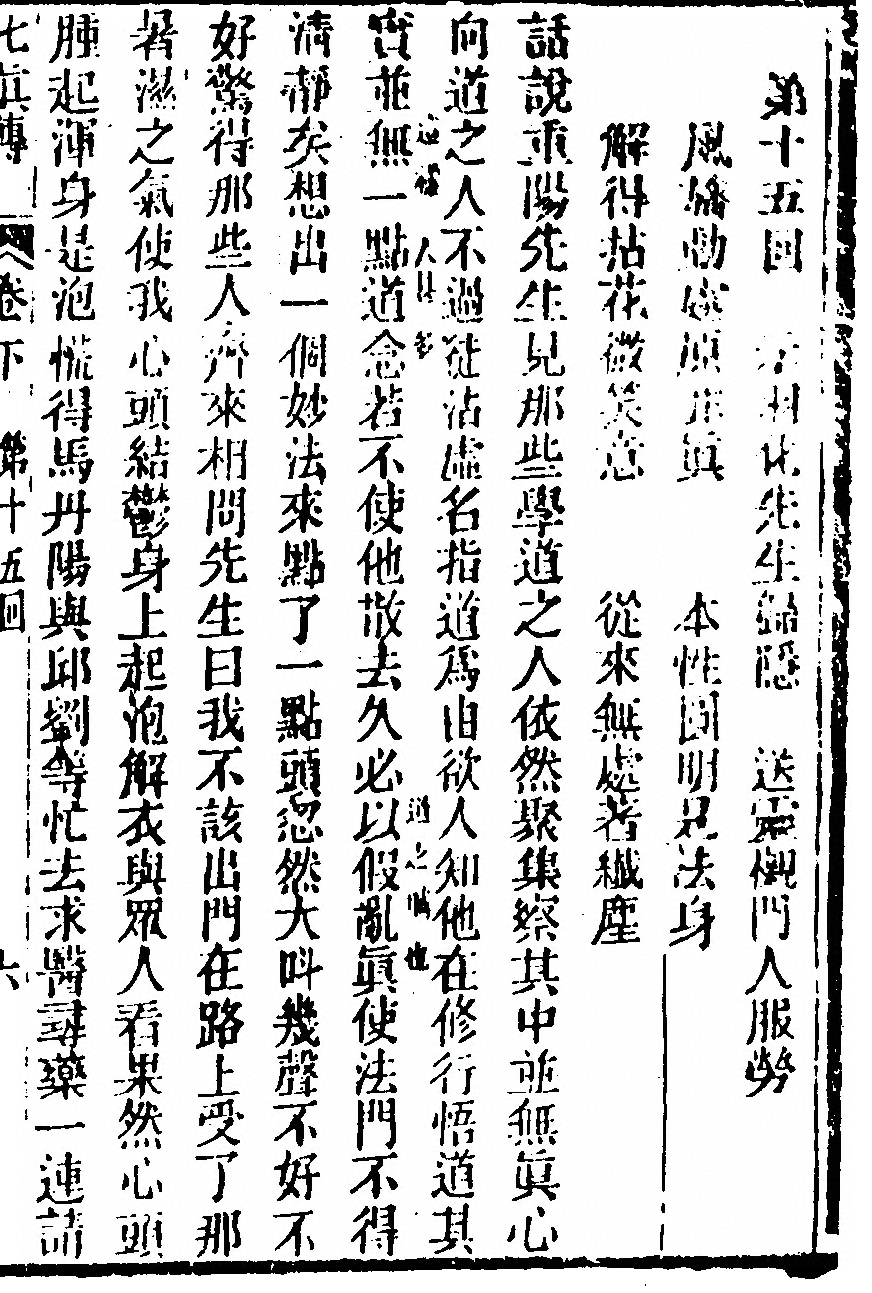 第十五回　示羽化先生歸隱　送靈櫬門人服勞
風旛動處原非眞　本性圓明見法身
解得拈花微笑意　從來無處著纖塵
話說重陽先生見那些學道之人依然聚集察其中並無眞心
向道之人不過徒沾虛名指道爲由欲人知他在修行悟道其
實並無一點道念若不使他散去久必以假亂眞使法門不得
清靜矣想出一個妙法來點了一點頭忽然大呌幾聲不好不
好驚得那些人齊來相問先生曰我不該出門在路上受了那
暑濕之氣使我心頭結鬱身上起泡解衣與眾人看果然心頭
腫起渾身是泡慌得馬丹陽與邱劉等忙去求醫尋藥一連請
七眞傳　卷下　第十五回　六